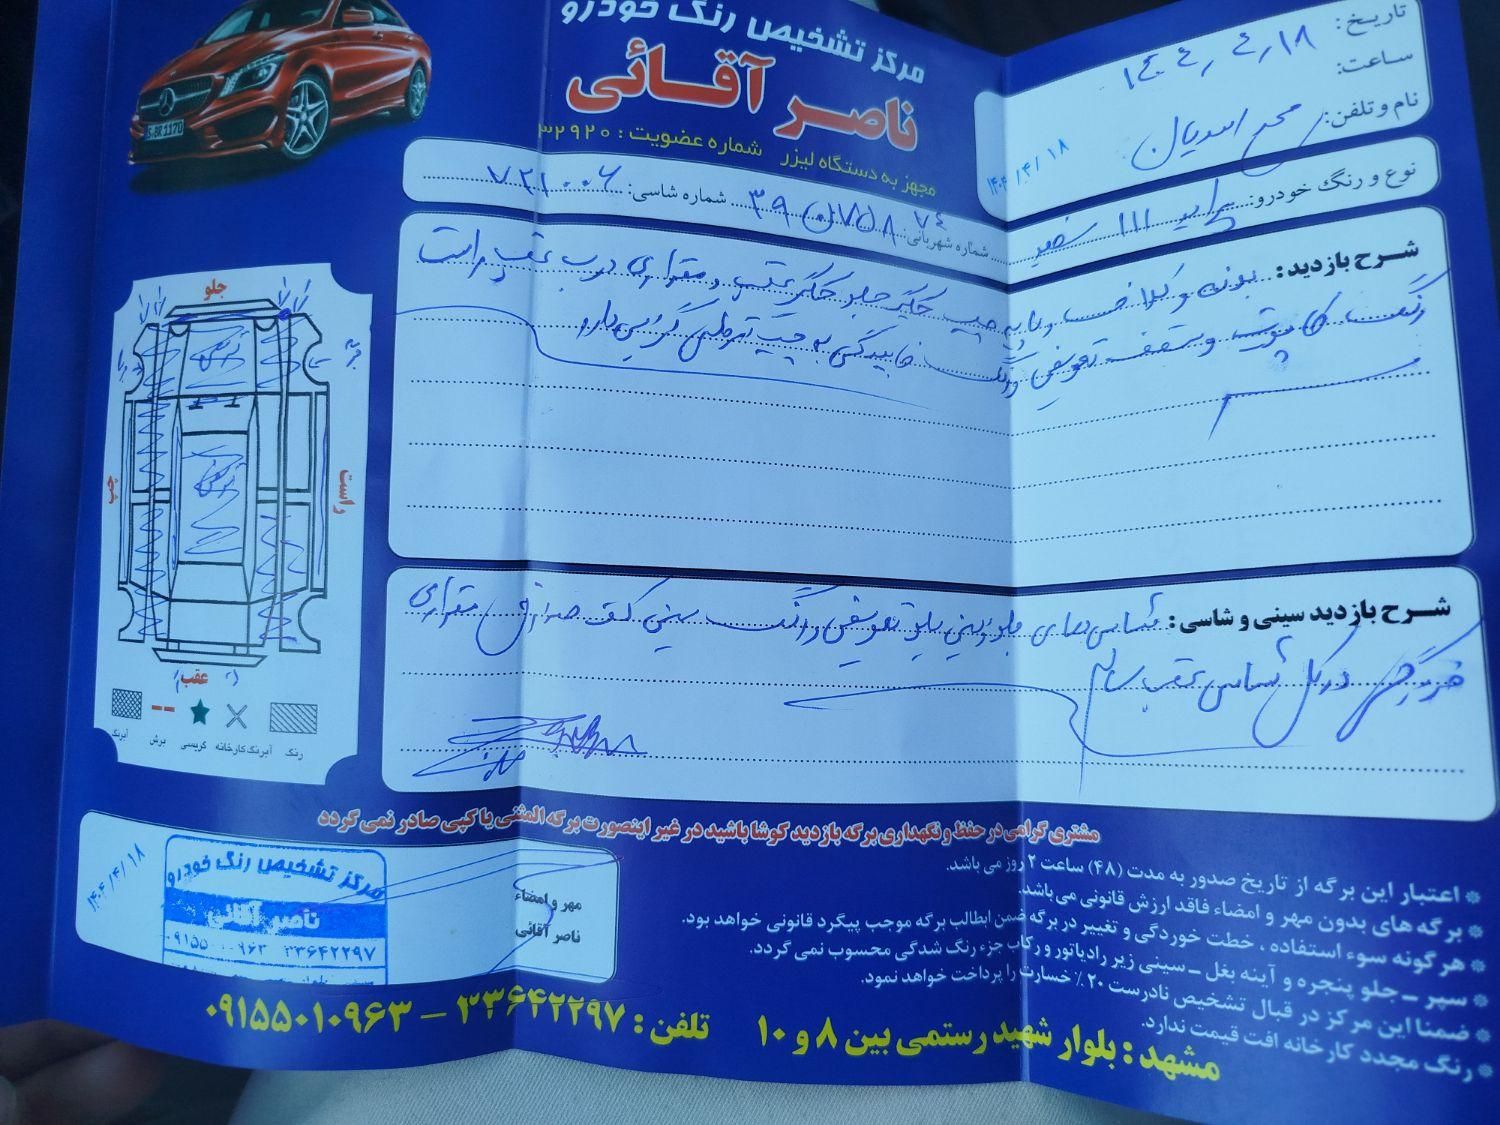 مرکز تشخیص رنگ خودرو
ناصر آقائی
مجهز به دستگاه لیزر شماره عضویت : ۳۲۹۲۰
S·BR 1170
تاریخ: ۱۴۰۴٫۴٫۱۸
ساعت:
نام و تلفن:
۱۴۰۴/۴/۱۸
نوع و رنگ خودرو: پراید ۱۱۱ سفید
شماره شهربانی: ۷۴ ۷۵۸ ن ۳۹ شماره شاسی: ۷۲۱۰۰۶
شــرح بازدید: رنگ کاپوت و سقف تعویض و رنگ
شــرح بازدید سینی و شاسی: شاسی‌های جلو سینی جلو تعویض و رنگ سینی کف صندوق مقداری
خوردگی در کل شاسی عقب سالم
جلو
چپ
راست
عقب
رنگ
آبرنگ کارخانه
گریسی
برش
آبرنگ
مشتری گرامی در حفظ و نگهداری برگه بازدید کوشا باشید در غیر اینصورت برگه المثنی یا کپی صادر نمی گردد
* اعتبار این برگه از تاریخ صدور به مدت (۴۸) ساعت ۲ روز می باشد.
* برگه های بدون مهر و امضاء فاقد ارزش قانونی می باشد.
* هر گونه سوء استفاده ، خطت خوردگی و تغییر در برگه ضمن ابطالب برگه موجب پیگرد قانونی خواهد بود.
* سپر ــ جلو پنجره و آینه بغل ــ سینی زیر رادیاتور و رکاب جزء رنگ شدگی محسوب نمی گردد.
* ضمنا این مرکز در قبال تشخیص نادرست ۲۰ ٪ خسارت را پرداخت خواهد نمود.
* رنگ مجدد کارخانه افت قیمت ندارد.
مهر و امضاء
ناصر آقائی
مرکز تشخیص رنگ خودرو
ناصر آقائی
۳۳۶۴۲۲۹۷
۱۴۰۴/۴/۱۸
مشهد : بلوار شهید رستمی بین ۸ و ۱۰ تلفن : ۳۳۶۴۲۲۹۷ – ۰۹۱۵۵۰۱۰۹۶۳